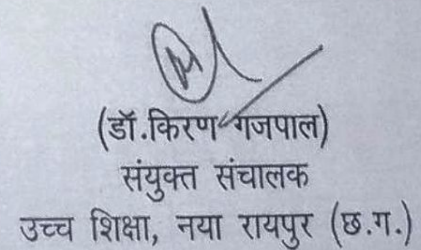 (डॉ.किरण गजपाल)
संयुक्त संचालक
उच्च शिक्षा, नया रायपुर (छ.ग.)